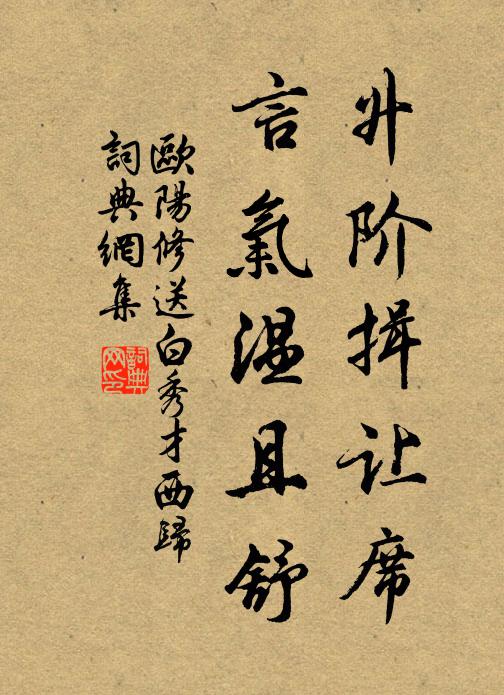 升阶揖让席
言氣溫且舒
歐陽修送白秀才西歸
詞典網集
詞典网印